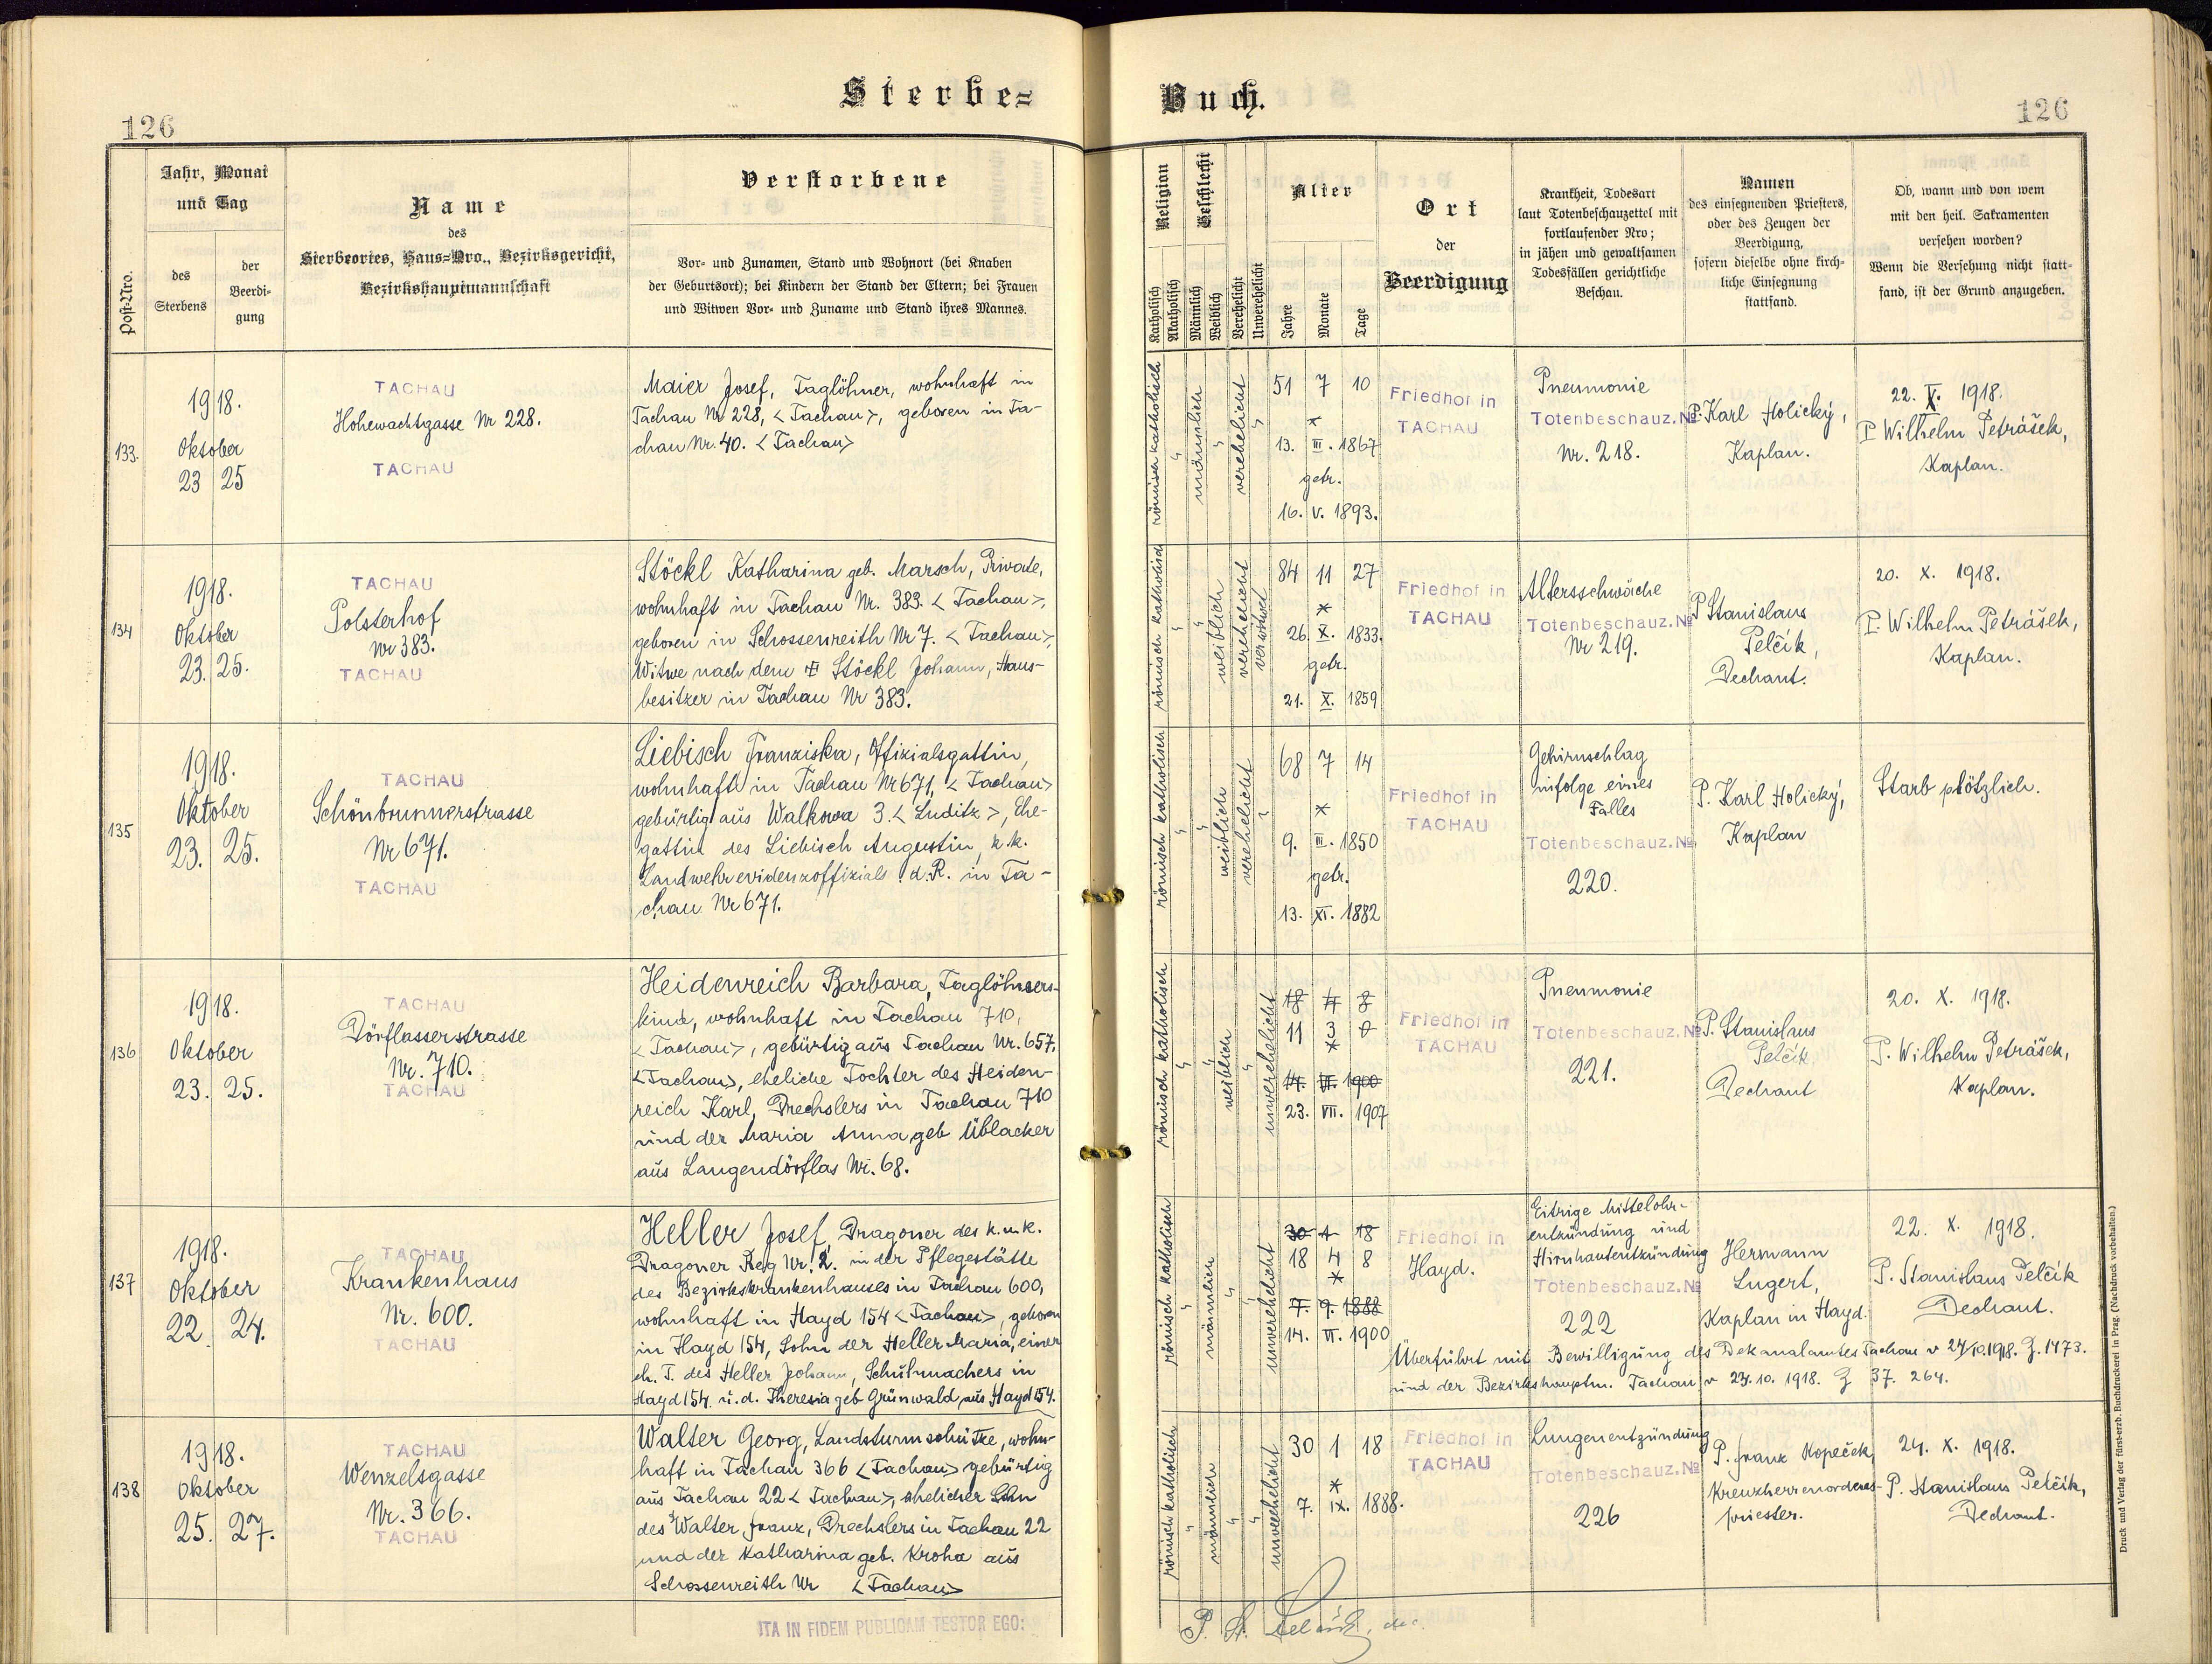 Sterbe-
Buch.
126
126
Post-Nro.
Jahr, Monat
und Tag
des
Sterbens
der
Beerdi-
gung
Name
des
Sterbeortes, Haus-Nro., Bezirksgericht,
Bezirkshauptmannschaft
Verstorbene
Vor- und Zunamen, Stand und Wohnort (bei Knaben
der Geburtsort); bei Kindern der Stand der Eltern; bei Frauen
und Witwen Vor- und Zuname und Stand ihres Mannes.
Religion
Katholisch
Akatholisch
Geschlecht
Männlich
Weiblich
Verehelicht
Unverehelicht
Alter
Jahre
Monate
Tage
Ort
der
Beerdigung
Krankheit, Todesart
laut Totenbeschauzettel mit
fortlaufender Nro;
in jähen und gewaltsamen
Todesfällen gerichtliche
Beschau.
Namen
des einsegnenden Priesters,
oder des Zeugen der
Beerdigung,
sofern dieselbe ohne kirch-
liche Einsegnung
stattfand.
Ob, wann und von wem
mit den heil. Sakramenten
versehen worden?
Wenn die Versehung nicht statt-
fand, ist der Grund anzugeben.
133.
1918.
Oktober
23 25
TACHAU
Hohewachtgasse Nr 228.
TACHAU
Maier Josef, Taglöhner, wohnhaft in
Tachau Nr 228, < Tachau >, geboren in Ta-
chau Nr. 40. < Tachau >
römisch katholisch
männlich
verehelicht
51 7 10
*
13. III. 1867
getr.
16. V. 1893.
Friedhof in
TACHAU
Pneumonie
Totenbeschauz. No
Nr. 218.
P. Karl Holický,
Kaplan.
22. X. 1918.
P. Wilhelm Petrášek,
Kaplan.
134
1918.
Oktober
23. 25.
TACHAU
Polsterhof
Nr 383.
TACHAU
Stöckl Katharina geb. Marsch, Private,
wohnhaft in Tachau Nr. 383. < Tachau >,
geboren in Schossenreith Nr 7. < Tachau >,
Witwe nach dem Stöckl Johann, Haus-
besitzer in Tachau Nr 383.
römisch katholisch
weiblich
verehelicht
verwitwet
84 11 27
*
26. X. 1833.
getr.
21. X. 1859
Friedhof in
TACHAU
Altersschwäche
Totenbeschauz. No
Nr 219.
P. Stanislaus
Pelčik,
Dechant.
20. X. 1918.
P. Wilhelm Petrášek,
Kaplan.
135
1918.
Oktober
23. 25.
TACHAU
Schönbrunnerstrasse
Nr 671.
TACHAU
Liebisch Franziska, Offizialsgattin,
wohnhaft in Tachau Nr 671, < Tachau >
gebürtig aus Walkowa 3. < Luditz >, Ehe-
gattin des Liebisch Augustin, k. k.
Landwehrevidenzoffizials i. d. R. in Ta-
chau Nr 671.
römisch katholisch
weiblich
verehelicht
68 7 14
*
9. III. 1850
getr.
13. XI. 1882
Friedhof in
TACHAU
Gehirnschlag
infolge eines
Falles
Totenbeschauz. No
220.
P. Karl Holický,
Kaplan
Starb plötzlich.
136
1918.
Oktober
23. 25.
TACHAU
Dörflasserstrasse
Nr. 710.
TACHAU
Heidenreich Barbara, Taglöhners-
kind, wohnhaft in Tachau 710,
< Tachau >, gebürtig aus Tachau Nr. 657,
< Tachau >, eheliche Tochter des Heiden-
reich Karl, Drechslers in Tachau 710
und der Maria Anna geb Üblacker
aus Langendörflas Nr. 68.
römisch katholisch
weiblich
unverehelicht
18 4 8
11 3 0
*
14. VI. 1900
23. VII. 1907
Friedhof in
TACHAU
Pneumonie
Totenbeschauz. No
221.
P. Stanislaus
Pelčik
Dechant
20. X. 1918.
P. Wilhelm Petrášek,
Kaplan.
137
1918.
Oktober
22 24.
TACHAU
Krankenhaus
Nr. 600.
TACHAU
Heller Josef, Dragoner des k. u. k.
Dragoner Reg Nr. 2. in der Pflegestätte
des Bezirkskrankenhauses in Tachau 600,
wohnhaft in Hayd 154 < Tachau >, geboren
in Hayd 154, Sohn der Heller Maria, einer
eh. T. des Heller Johann, Schuhmachers in
Hayd 154 u. d. Theresia geb Grünwald aus Hayd 154.
römisch katholisch
männlich
unverehelicht
30 1 18
18 4 8
*
7. 9. 1888
14. VI. 1900
Friedhof in
Hayd.
Eitrige Mittelohr-
entzündung und
Hirnhautentzündung
Totenbeschauz. No
222
Hermann
Lugert,
Kaplan in Hayd.
22. X. 1918.
P. Stanislaus Pelčik
Dechant.
Überführt mit Bewilligung des Dekanalamtes Tachau v 24/10.1918. Z. 1473.
und der Bezirkshauptm. Tachau v 24. 10. 1918. Z 37. 264.
138
1918.
Oktober
25. 27.
TACHAU
Wenzelsgasse
Nr. 366.
TACHAU
Walter Georg, Landsturmschütze, wohn-
haft in Tachau 366 < Tachau > gebürtig
aus Tachau 22 < Tachau >, ehelicher Sohn
des Walter Franz, Drechslers in Tachau 22
und der Katharina geb. Kroha aus
Schossenreith Nr < Tachau >
römisch katholisch
männlich
unverehelicht
30 1 18
*
7. IX. 1888.
Friedhof in
TACHAU
Lungenentzündung
Totenbeschauz. No
226
P. Franz Kopeček,
Kreuzherrenordens-
priester.
24. X. 1918.
P. Stanislaus Pelčik,
Dechant.
ITA IN FIDEM PUBLICAM TESTOR EGO:
P. St. Pelčik, dec.
Druck und Verlag der fürst-erzb. Buchdruckerei in Prag. (Nachdruck vorbehalten.)